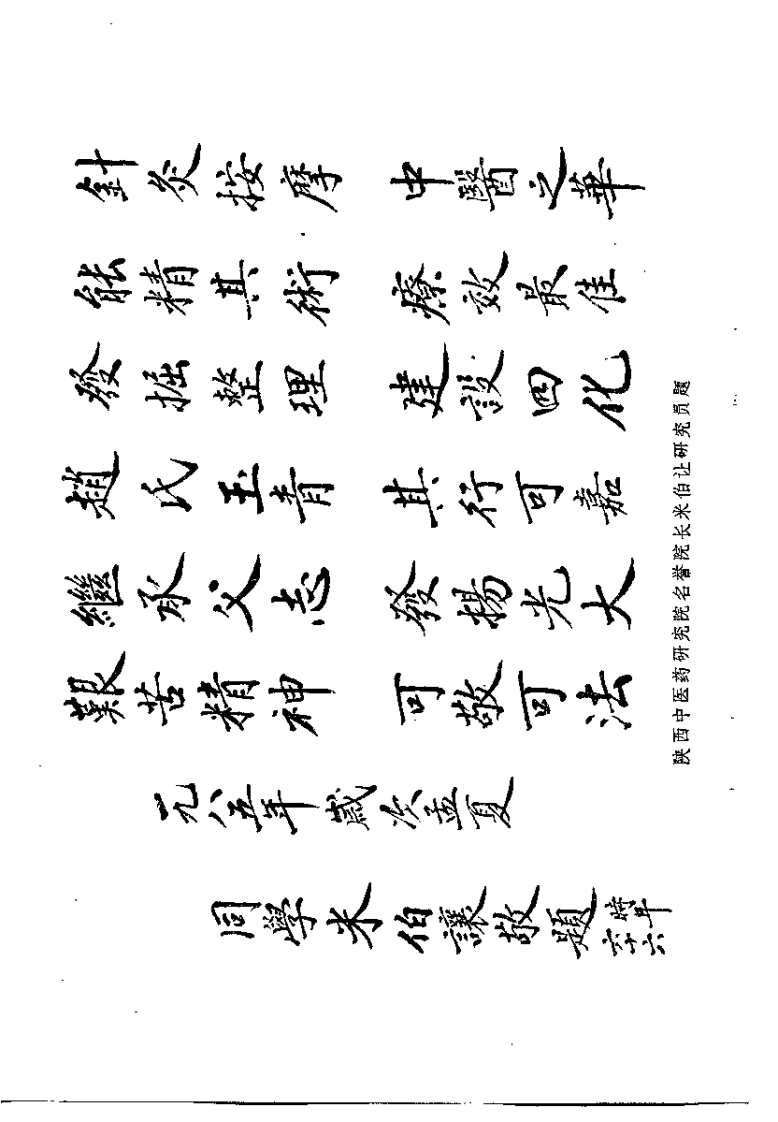 針灸按摩 中醫之華
能精其術 療效最佳
發掘整理 建設四化
趙氏玉青 其行可嘉
繼承父志 發揚光大
艱苦精神 可敬可法
一九八五年歲次孟夏
同學米伯讓敬題 時年六十六
陕西中医药研究院名誉院长米伯让研究员题